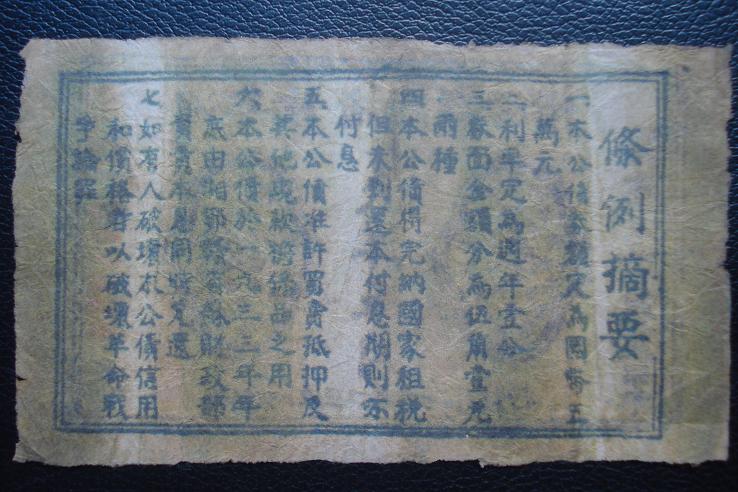 條例摘要
一本公債券額定為國幣五
萬元
二利率定為週年壹分
三券面金額分為伍角壹元
兩種
四本公債得完納國家租稅
但未到還本付息期則不
付息
五本公債准許買賣抵押及
其他現款擔保品之用
六本公債於一九三三年年
底由湘鄂贛省蘇財政部
負責本息同時兌還
七如有人破壞本公債信用
和價格者以破壞革命戰
爭論罪